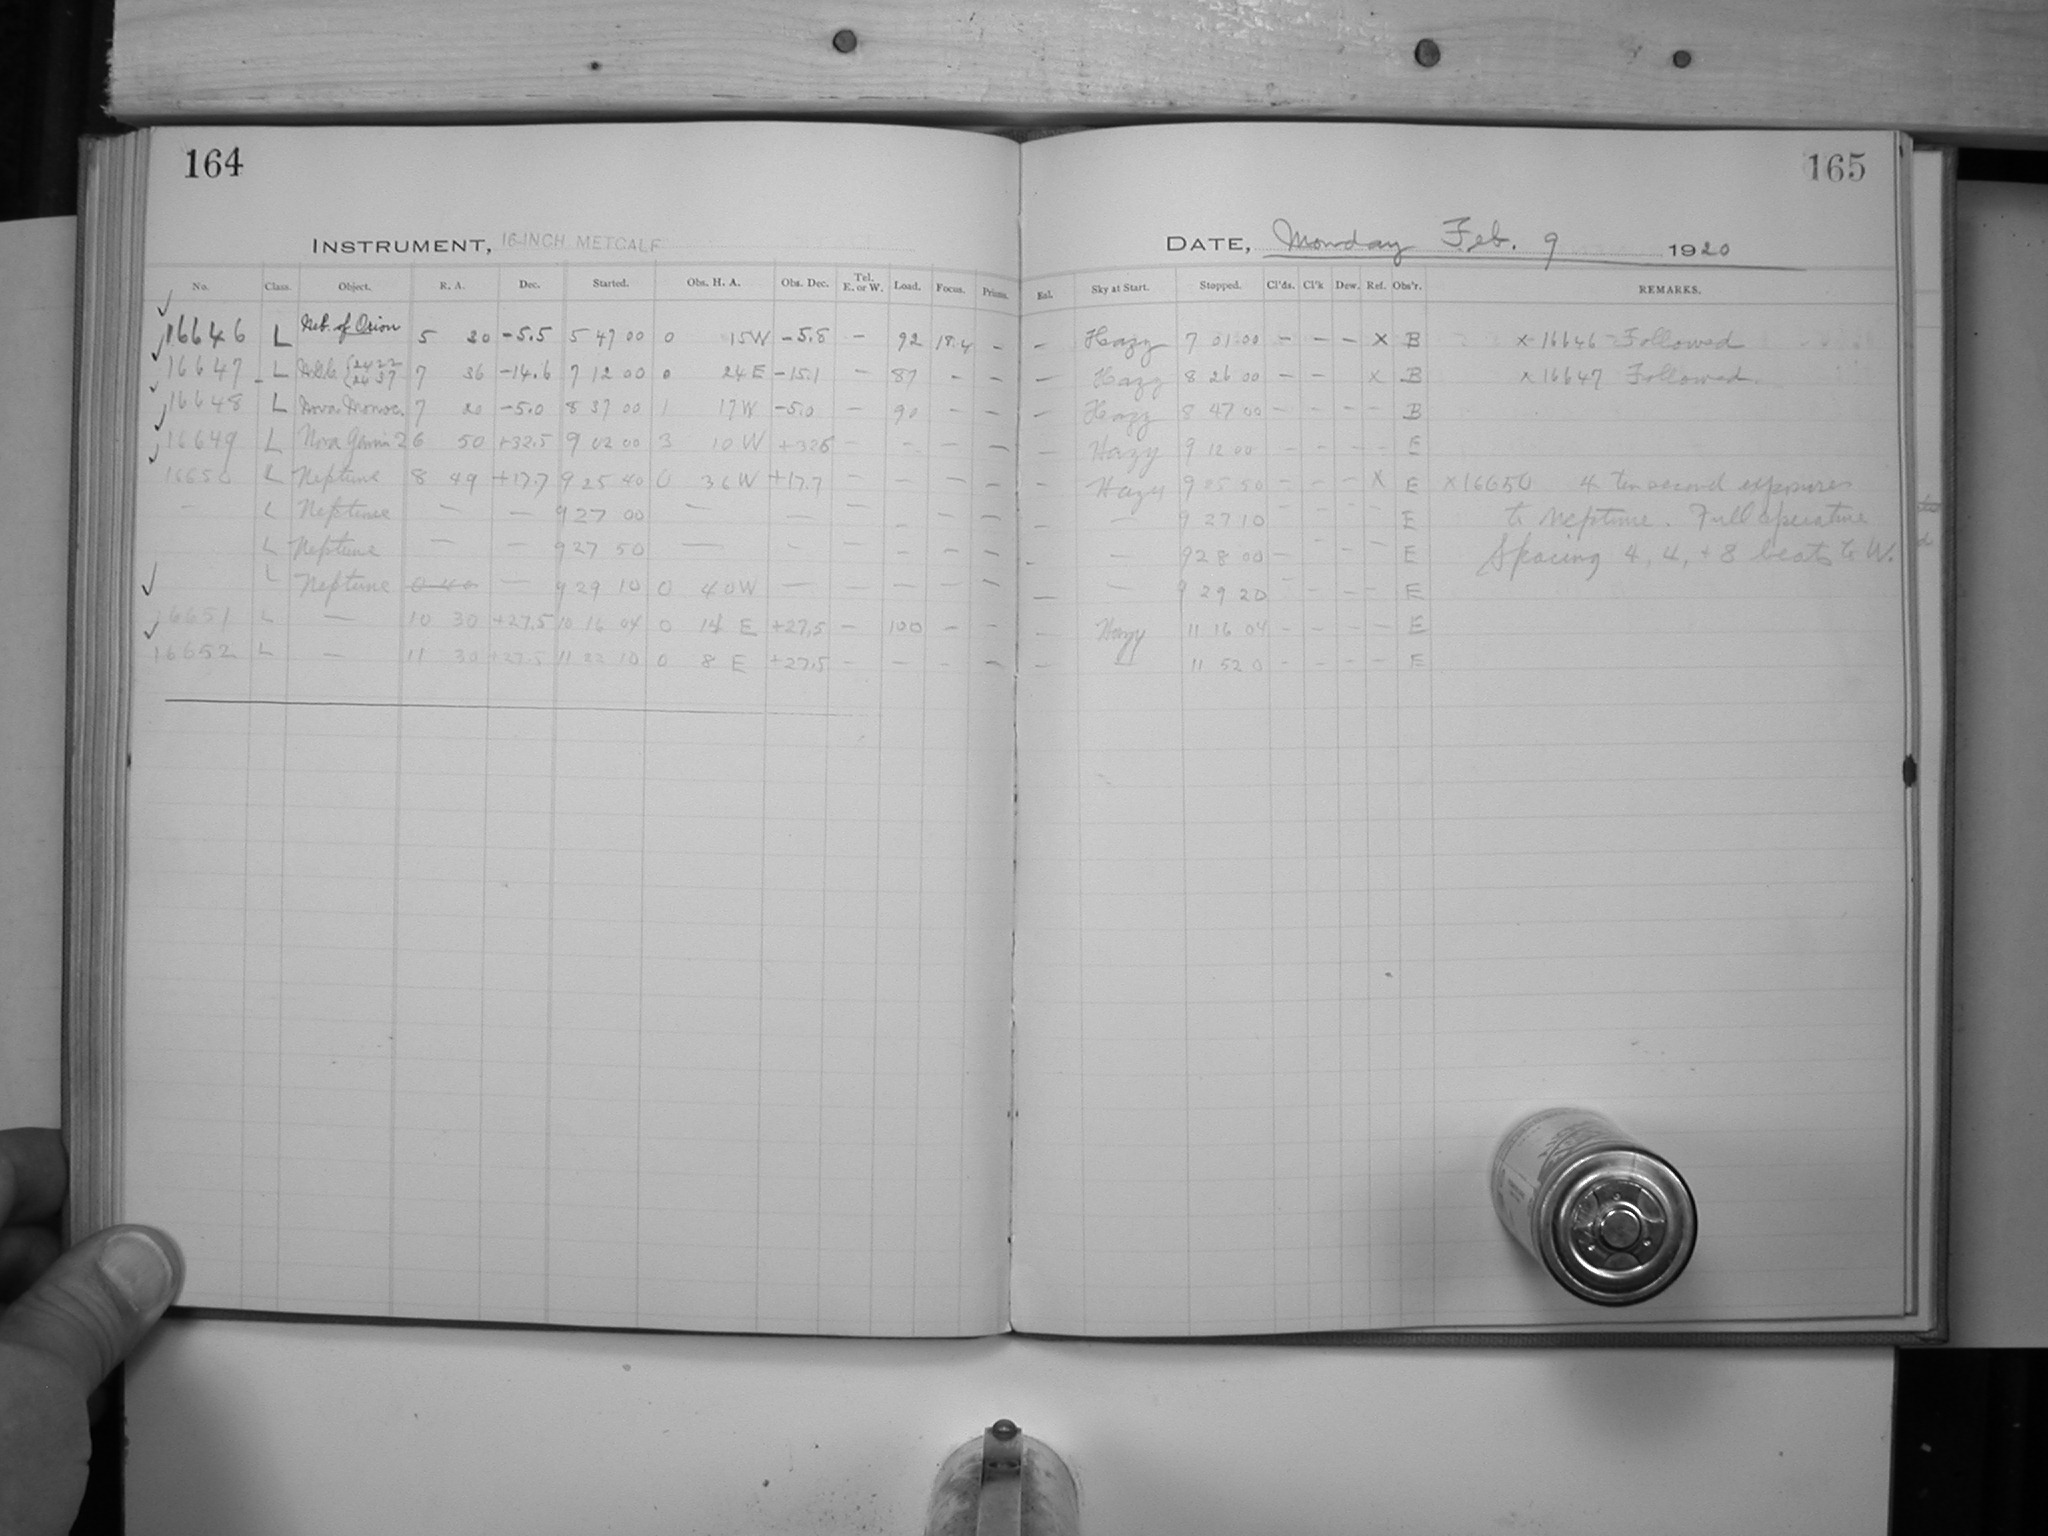 164
165
INSTRUMENT, 16-INCH METCALF
DATE, Monday Feb. 9 1920
No. Class. Object. R. A. Dec. Started. Obs. H. A. Obs. Dec. Tel. E. or W. Load. Focus. Prisms. Enl. Sky at Start. Stopped. Cl'ds. Cl'k Dew. Ref. Obs'r. REMARKS.
16646 L Neb. of Orion 5 30 -5.5 5 47 00 0 15W -5.8 - 92 18.4 - - Hazy 7 01 00 - - - x B x 16646 Followed
16647 L N.G.C. {2422 2437 7 36 -14.6 7 12 00 0 24E -15.1 - 87 - - - Hazy 8 26 00 - - x B x 16647 Followed.
16648 L Nova Monoc. 7 20 -5.0 8 37 00 1 17W -5.0 - 90 - - - Hazy 8 47 00 - - - - B
16649 L Nova Gemin 2 6 50 +32.5 9 02 00 3 10 W +326 - - - - - Hazy 9 12 00 - - - - E
16650 L Neptune 8 49 +17.7 9 25 40 0 36W +17.7 - - - - - Hazy 9 25 50 - - - X E x16650 4 ten second exposures
- L Neptune - - 9 27 00 - - - - - - - - 9 27 10 - - - - E to Neptune. Full aperature
L Neptune - - 9 27 50 - - - - - - - - 9 28 00 - - - - E Spacing 4, 4, + 8 beats to W.
L Neptune - 9 29 10 0 40W - - - - - - - 9 29 20 - - - - E
16651 L - 10 30 +27.5 10 16 04 0 14 E +27.5 - 100 - - - Hazy 11 16 04 - - - - E
16652 L - 11 30 +27.5 11 22 10 0 8 E +27.5 - - - - - - 11 52 0 - - - - E